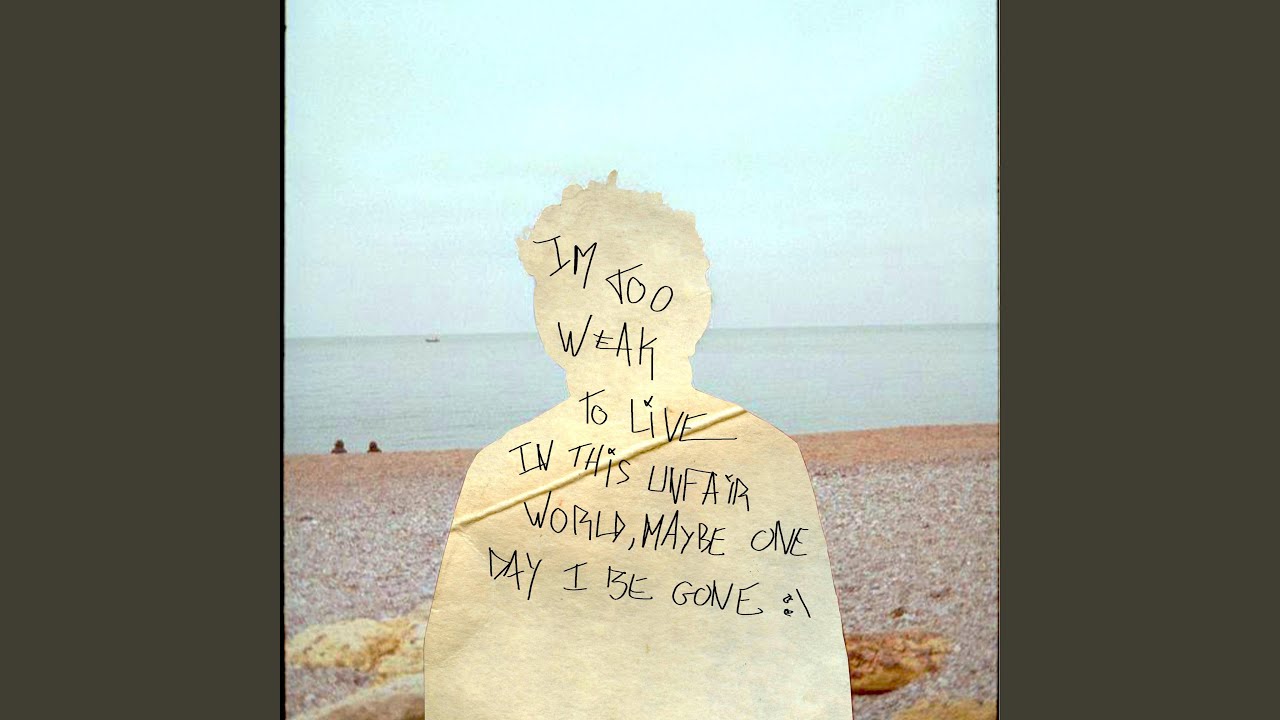 IM TOO
WEAK
TO LIVE
IN THIS UNFAIR
WORLD, MAYBE ONE
DAY I BE GONE :\